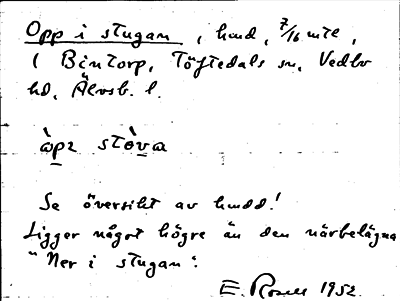 Opp i stugan, hmd, 7/16 mtl,
i Bintorp, Töftedals sn, Vedbo
hd, Älvsb. l.
ə̀pɪ stòva
Se översikt av hmdd!
Ligger något högre än den närbelägna
"Ner i stugan".
E. Rosell 1952